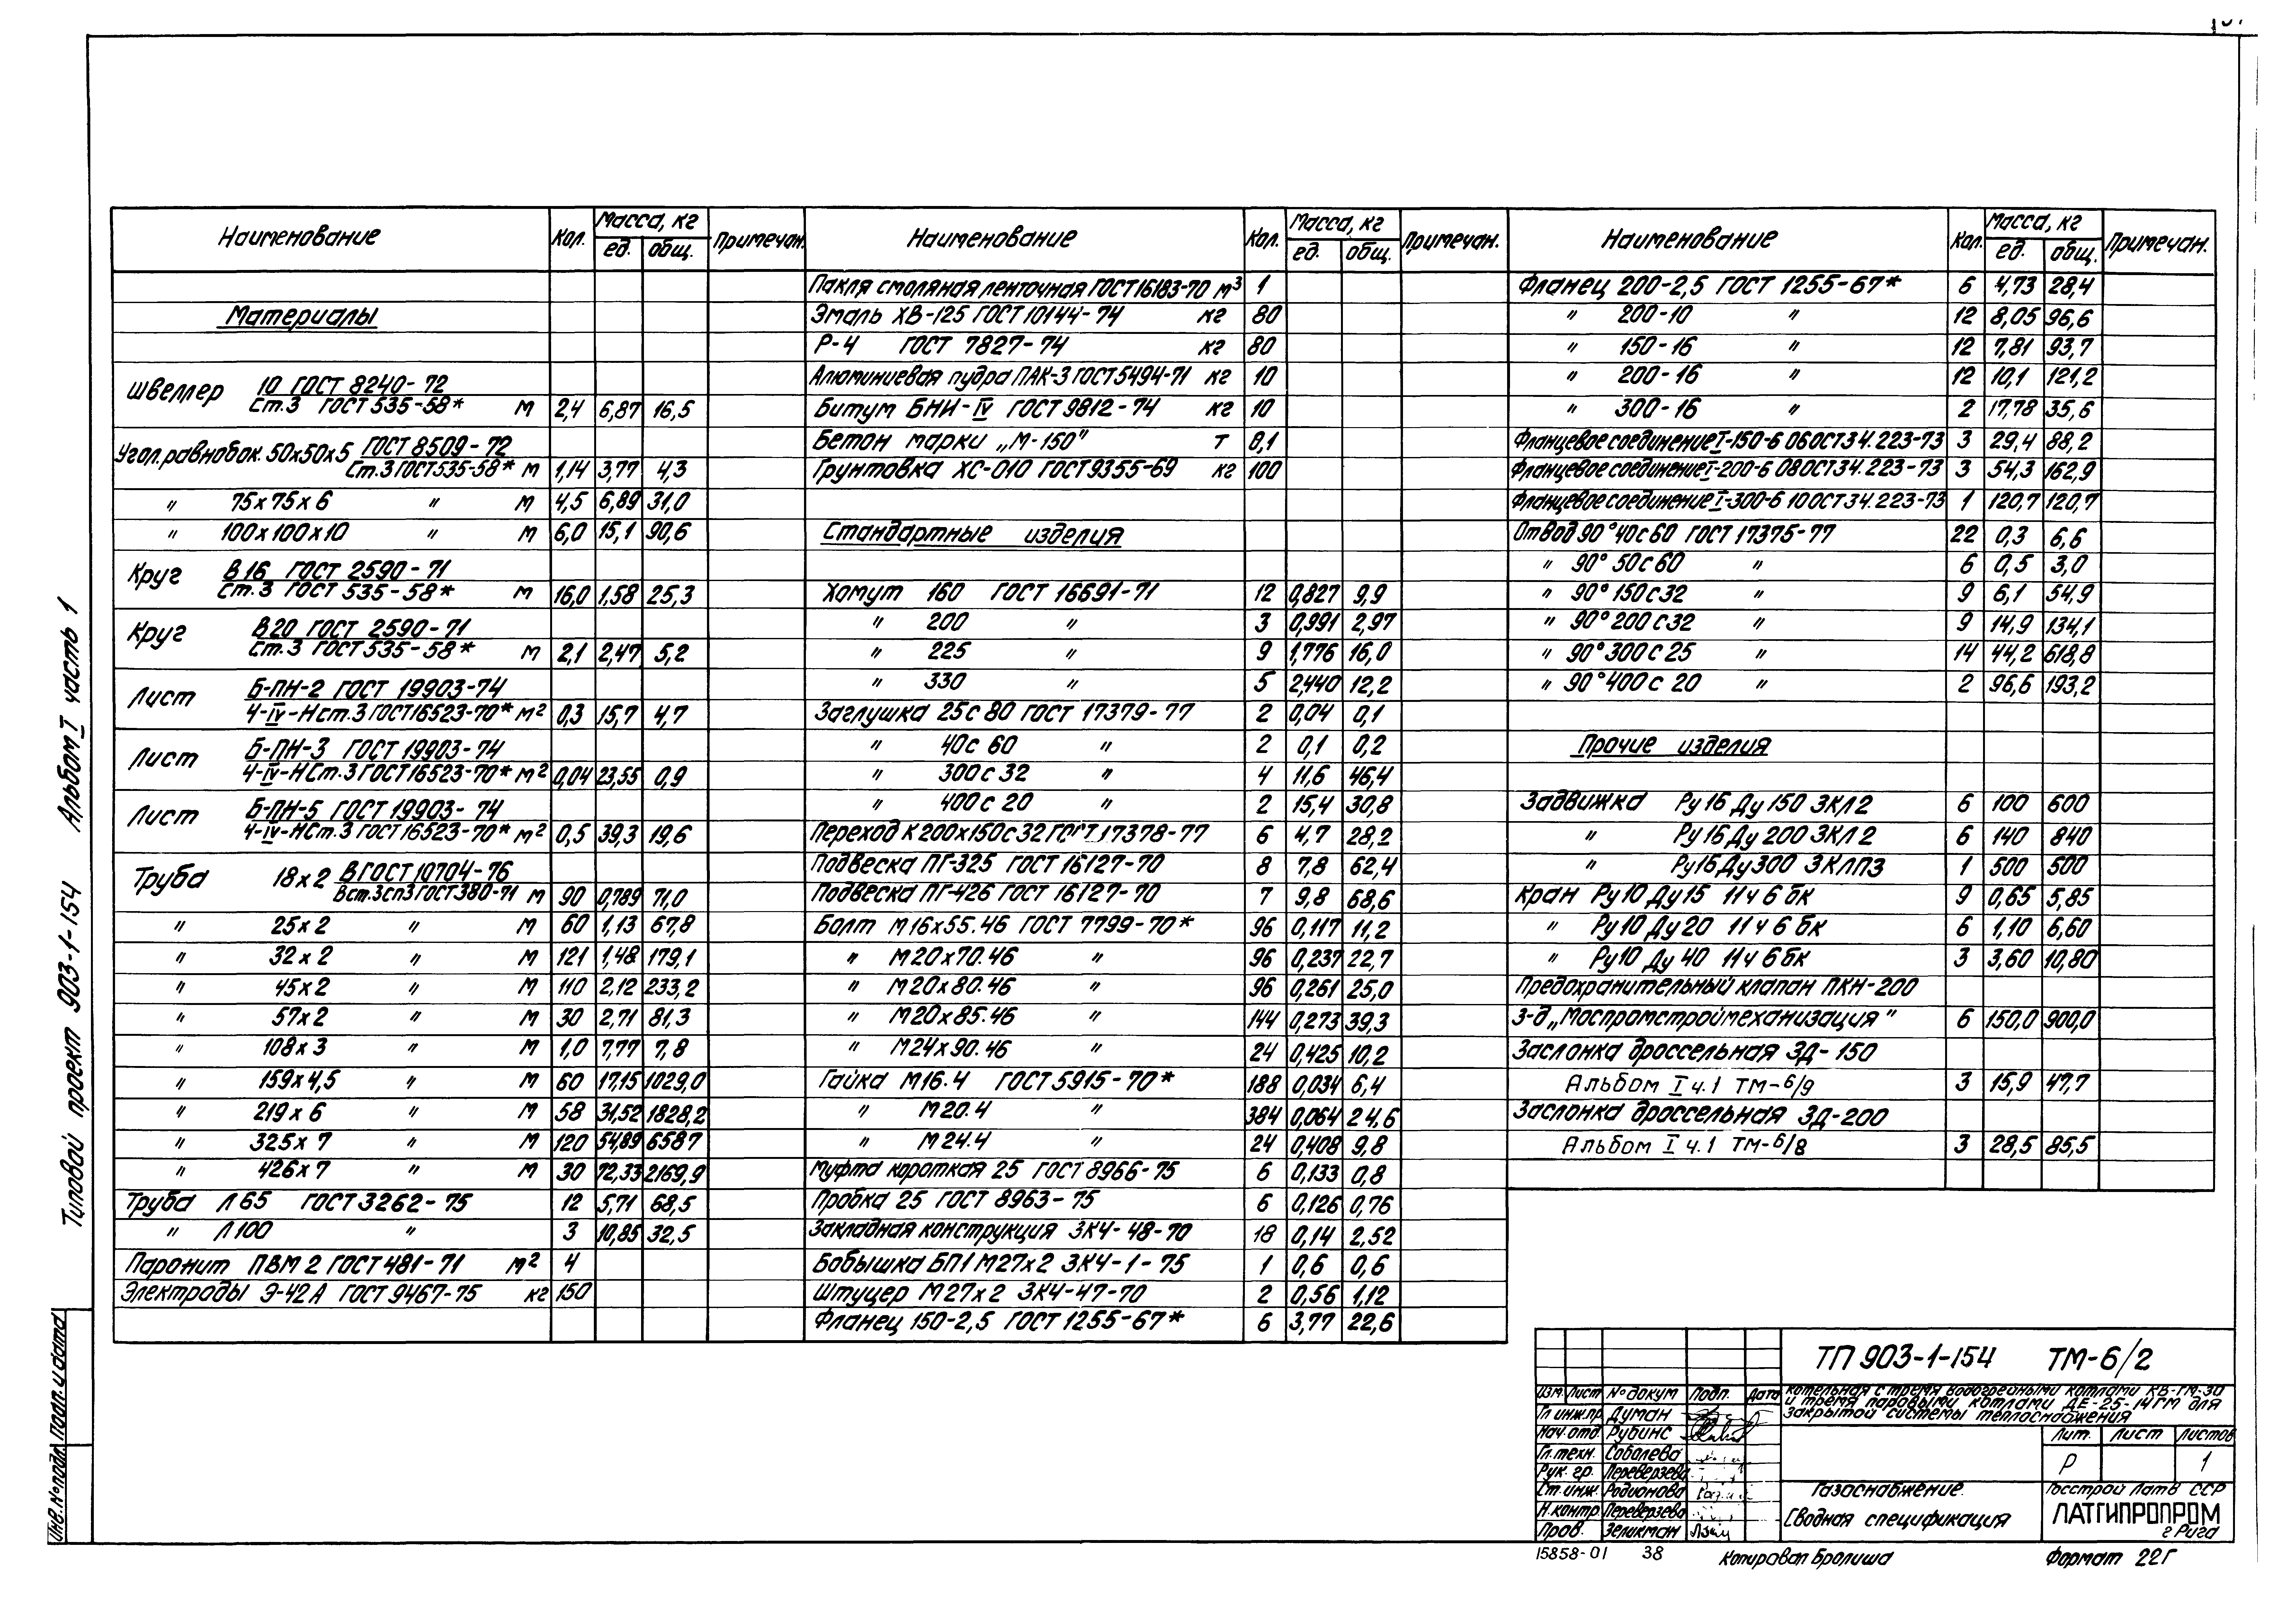 Типовой проект 903-1-154 Альбом I часть 1
Инв.№подл. Подп. и дата
Наименование Кол. Масса, кг ед. общ. Примечан.
Материалы
Швеллер 10 ГОСТ 8240-72
Ст.3 ГОСТ 535-58* м 2,4 6,87 16,5
Угол.равнобок. 50х50х5 ГОСТ 8509-72
Ст.3 ГОСТ 535-58* м 1,14 3,77 4,3
" 75х75х6 " м 4,5 6,89 31,0
" 100х100х10 " м 6,0 15,1 90,6
Круг В 16 ГОСТ 2590-71
Ст.3 ГОСТ 535-58* м 16,0 1,58 25,3
Круг В20 ГОСТ 2590-71
Ст.3 ГОСТ 535-58* м 2,1 2,47 5,2
Лист Б-ПН-2 ГОСТ 19903-74
4-IV-Нст.3 ГОСТ 16523-70* м2 0,3 15,7 4,7
Лист Б-ПН-3 ГОСТ 19903-74
4-IV-НСт.3 ГОСТ 16523-70* м2 0,04 23,55 0,9
Лист Б-ПН-5 ГОСТ 19903-74
4-IV-НСт.3 ГОСТ 16523-70* м2 0,5 39,3 19,6
Труба 18х2 В ГОСТ 10704-76
Вст.3сп3 ГОСТ 380-71 м 90 0,789 71,0
" 25х2 " м 60 1,13 67,8
" 32х2 " м 121 1,48 179,1
" 45х2 " м 110 2,12 233,2
" 57х2 " м 30 2,71 81,3
" 108х3 " м 1,0 7,77 7,8
" 159х4,5 " м 60 17,15 1029,0
" 219х6 " м 58 31,52 1828,2
" 325х7 " м 120 54,89 6587
" 426х7 " м 30 72,33 2169,9
Труба Л 65 ГОСТ 3262-75 12 5,71 68,5
" Л 100 " 3 10,85 32,5
Паронит ПВМ 2 ГОСТ 481-71 м2 4
Электроды Э-42А ГОСТ 9467-75 кг 150
Наименование Кол. Масса, кг ед. общ. Примечан.
Пакля смоляная ленточная ГОСТ 16183-70 м3 1
Эмаль ХВ-125 ГОСТ 10144-74 кг 80
Р-4 ГОСТ 7827-74 кг 80
Алюминиевая пудра ПАК-3 ГОСТ 5494-71 кг 10
Битум БНИ-IV ГОСТ 9812-74 кг 10
Бетон марки „М-150" т 0,1
Грунтовка ХС-010 ГОСТ 9355-69 кг 100
Стандартные изделия
Хомут 160 ГОСТ 16691-71 12 0,827 9,9
" 200 " 3 0,991 2,97
" 225 " 9 1,776 16,0
" 330 " 5 2,440 12,2
Заглушка 25с 80 ГОСТ 17379-77 2 0,04 0,1
" 40с 60 " 2 0,1 0,2
" 300с 32 " 4 11,6 46,4
" 400с 20 " 2 15,4 30,8
Переход К 200х150с32 ГОСТ 17378-77 6 4,7 28,2
Подвеска ПГ-325 ГОСТ 16127-70 8 7,8 62,4
Подвеска ПГ-426 ГОСТ 16127-70 7 9,8 68,6
Болт М16х55.46 ГОСТ 7799-70* 96 0,117 11,2
" М20х70.46 " 96 0,237 22,7
" М20х80.46 " 96 0,261 25,0
" М20х85.46 " 144 0,273 39,3
" М24х90.46 " 24 0,425 10,2
Гайка М16.4 ГОСТ 5915-70* 188 0,034 6,4
" М20.4 " 384 0,064 24,6
" М24.4 " 24 0,408 9,8
Муфта короткая 25 ГОСТ 8966-75 6 0,133 0,8
Пробка 25 ГОСТ 8963-75 6 0,126 0,76
Закладная конструкция ЗК4-48-70 18 0,14 2,52
Бобышка БП1 М27х2 ЗК4-1-75 1 0,6 0,6
Штуцер М27х2 ЗК4-47-70 2 0,56 1,12
Фланец 150-2,5 ГОСТ 1255-67* 6 3,77 22,6
Наименование Кол. Масса, кг ед. общ. Примечан.
Фланец 200-2,5 ГОСТ 1255-67* 6 4,73 28,4
" 200-10 " 12 8,05 96,6
" 150-16 " 12 7,81 93,7
" 200-16 " 12 10,1 121,2
" 300-16 " 2 17,78 35,6
Фланцевое соединение I-150-6 06 ОСТ 34.223-73 3 29,4 88,2
Фланцевое соединение I-200-6 08 ОСТ 34.223-73 3 54,3 162,9
Фланцевое соединение I-300-6 10 ОСТ 34.223-73 1 120,7 120,7
Отвод 90° 40с60 ГОСТ 17375-77 22 0,3 6,6
" 90° 50с60 " 6 0,5 3,0
" 90° 150с32 " 9 6,1 54,9
" 90° 200с32 " 9 14,9 134,1
" 90° 300с 25 " 14 44,2 618,8
" 90° 400с 20 " 2 96,6 193,2
Прочие изделия
Задвижка Ру 16 Ду 150 ЗКЛ2 6 100 600
" Ру16 Ду 200 ЗКЛ 2 6 140 840
" Ру16 Ду300 ЗКЛПЗ 1 500 500
Кран Ру10 Ду15 11ч 6 бк 9 0,65 5,85
" Ру10 Ду20 11ч 6 бк 6 1,10 6,60
" Ру10 Ду 40 11ч 6 бк 3 3,60 10,80
Предохранительный клапан ПКН-200
З-д „Моспромстроймеханизация" 6 150,0 900,0
Заслонка дроссельная ЗД-150
Альбом I ч.1 ТМ-6/9 3 15,9 47,7
Заслонка дроссельная ЗД-200
Альбом I ч.1 ТМ-6/8 3 28,5 85,5
ТП 903-1-154 ТМ-6/2
Изм Лист № докум Подп. Дата
Котельная с тремя водогрейными котлами КВ-ГМ-30
и тремя паровыми котлами ДЕ-25-14ГМ для
закрытой системы теплоснабжения
Гл инж.пр. Думан
Нач.отд. Рубинс
Гл.техн. Соболева
Рук. гр. Переверзева
Ст.инж. Родионова
Н.контр Переверзева
Пров. Зеликман
Лит. Лист Листов
Р 1
Газоснабжение.
Сводная спецификация
Госстрой Латв ССР
ЛАТГИПРОПРОМ
г Рига
15858-01 38 Копировал Бролиша Формат 22Г